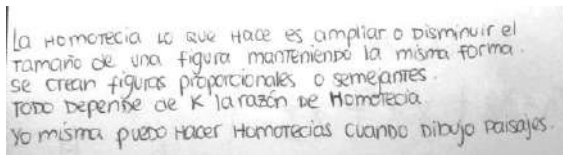 La Homotecia lo que Hace es ampliar o Disminuir el
Tamaño de una figura manteniendo la misma forma.
se crean figuras proporcionales o semejantes.
TODO Depende de K la razón de Homotecia.
Yo misma puedo Hacer Homotecias cuando Dibujo paisajes.